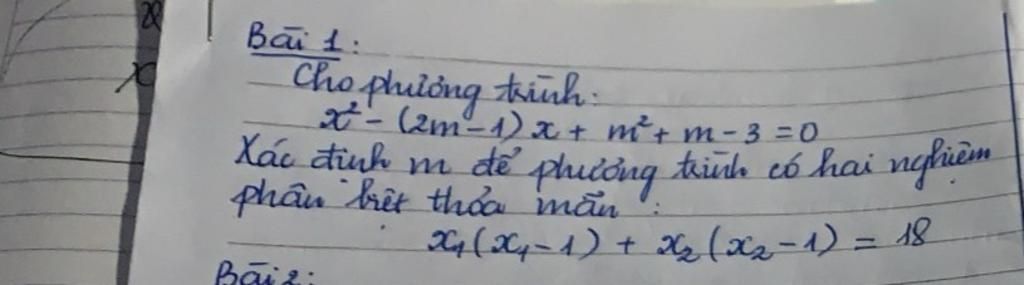 Bài 1:
Cho phương trình:
x² - (2m-1)x + m² + m - 3 = 0
Xác định m để phương trình có hai nghiệm
phân biệt thỏa mãn:
x₁(x₁-1) + x₂(x₂-1) = 18
Bài 2: